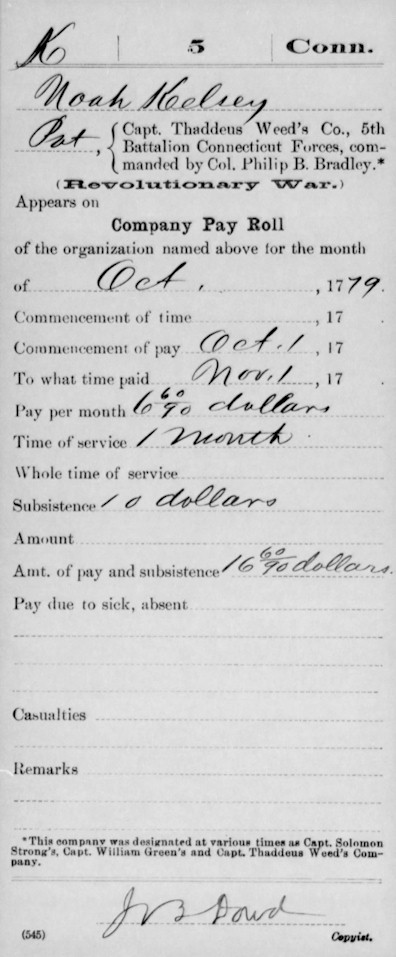 K | 5 | Conn.
Noah Kelsey
Pvt, { Capt. Thaddeus Weed's Co., 5th
Battalion Connecticut Forces, com-
manded by Col. Philip B. Bradley.*
(Revolutionary War.)
Appears on
Company Pay Roll
of the organization named above for the month
of Oct. , 1779.
Commencement of time , 17 .
Commencement of pay Oct. 1 , 17 .
To what time paid Nov. 1 , 17 .
Pay per month 6 60/90 dollars
Time of service 1 month
Whole time of service
Subsistence 10 dollars
Amount
Amt. of pay and subsistence 16 60/90 dollars.
Pay due to sick, absent
Casualties
Remarks
*This company was designated at various times as Capt. Solomon
Strong's, Capt. William Green's and Capt. Thaddeus Weed's Com-
pany.
J B Dowd
(545) Copyist.